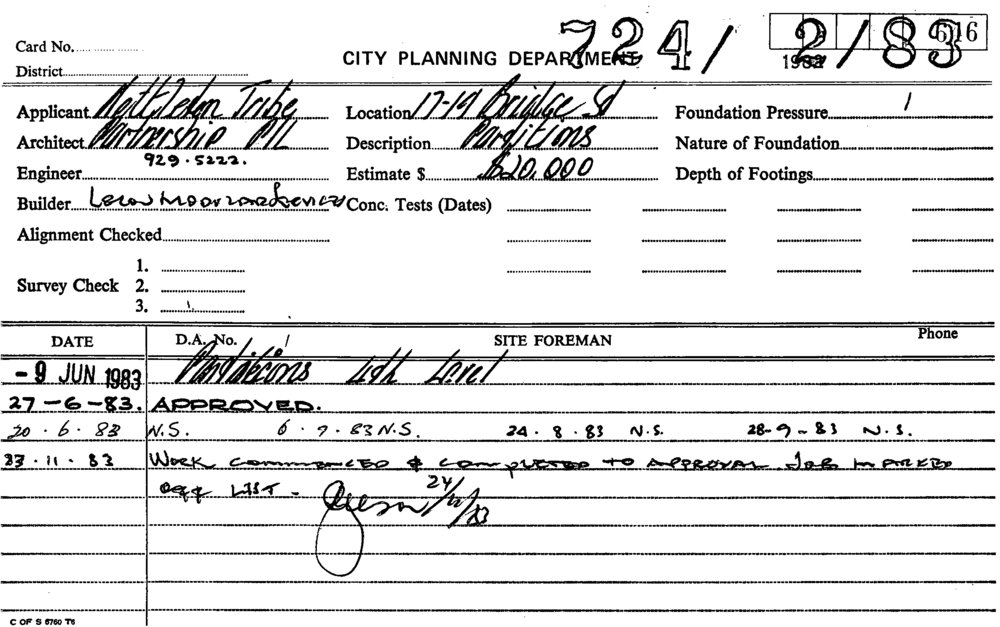 Card No.
CITY PLANNING DEPARTMENT
724/ 2/83
616
District
Applicant Nettleton Tribe
Location 17-19 Bridge St
Foundation Pressure
Architect Partnership P/L
Description Partitions
Nature of Foundation
929.5222.
Engineer
Estimate $ $20,000
Depth of Footings
Builder
Conc. Tests (Dates)
Alignment Checked
1.
Survey Check 2.
3.
DATE D.A. No. SITE FOREMAN Phone
- 9 JUN 1983 Partitions 4th Level
27-6-83. APPROVED.
20.6.83 N.S. 6.9.83 N.S. 24.8.83 N.S. 28-9-83 N.S.
23.11.83 WORK COMMENCED & COMPLETED TO APPROVAL. JOB MARKED
OFF LIST -
C OF S 6760 T6